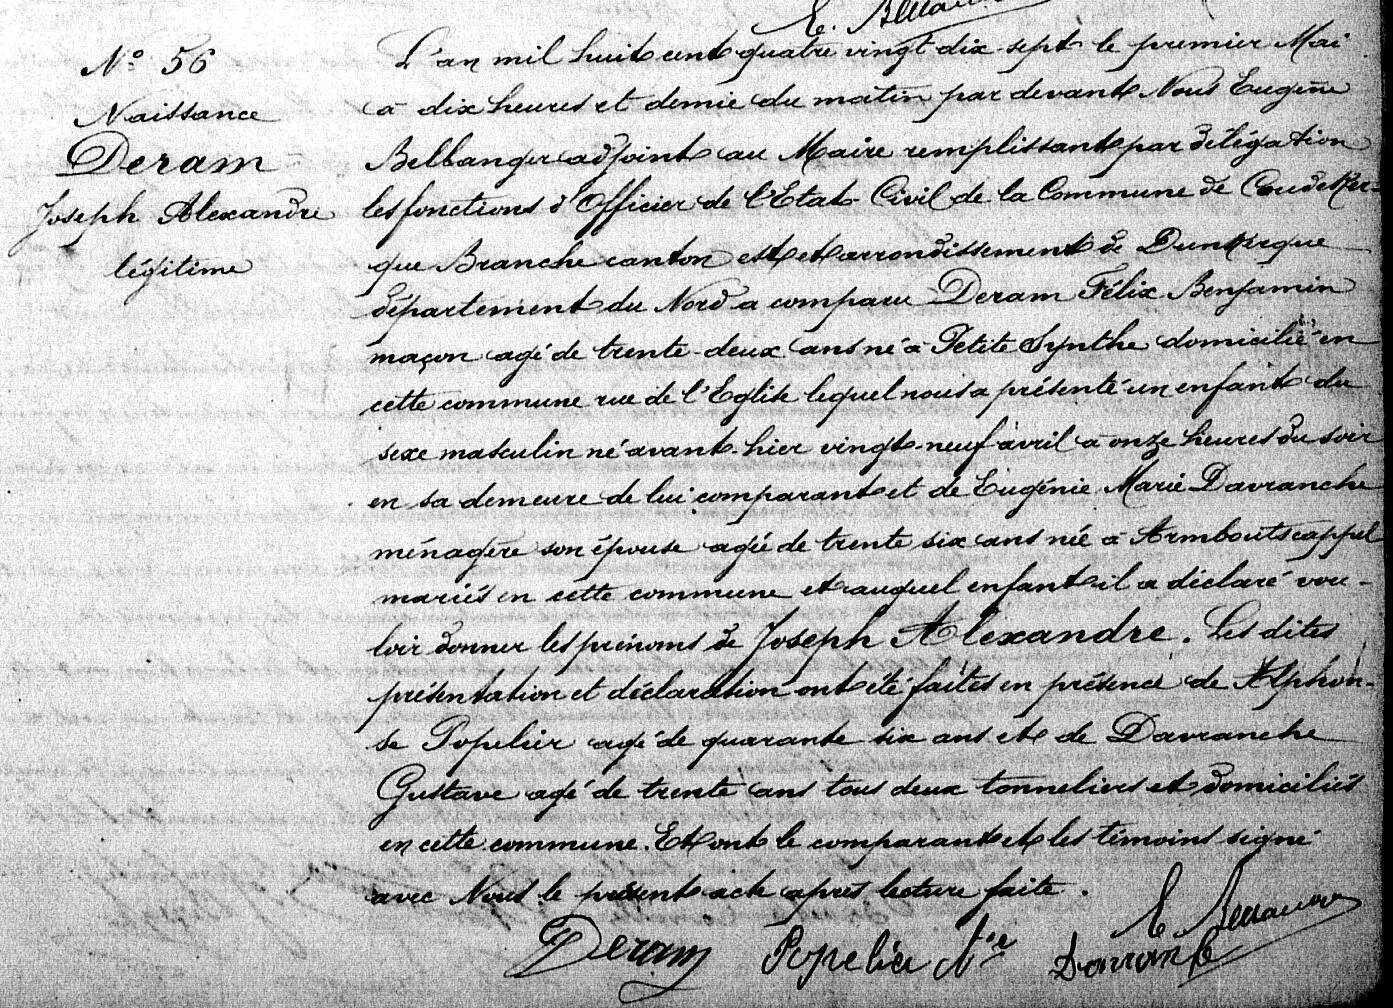 E. Bellanger
N° 56
Naissance
Deram
Joseph Alexandre
légitime
L'an mil huit cent quatre vingt dix-sept le premier Mai
à dix heures et demie du matin par devant Nous Eugène
Bellanger adjoint au Maire remplissant par délégation
les fonctions d'Officier de l'Etat-Civil de la Commune de Coudeker-
que Branche canton est et arrondissement de Dunkirque
département du Nord a comparu Deram Félix Benjamin
maçon agé de trente-deux ans né à Petite Synthe domicilié en
cette commune rue de l'Eglise lequel nous a présenté un enfant du
sexe masculin né avant-hier vingt-neuf avril à onze heures du soir
en sa demeure de lui comparant et de Eugénie Marie Davranche
ménagère son épouse agée de trente six ans née à Armboutscappel
mariés en cette commune et auquel enfant il a déclaré vou-
loir donner les prénoms de Joseph Alexandre. Les dites
présentation et déclaration ont été faites en présence de Alphon-
se Popelier agé de quarante six ans et de Davranche
Gustave agé de trente ans tous deux tonneliers et domiciliés
en cette commune. Et ont le comparant et les témoins signé
avec Nous le présent acte après lecture faite.
E Bellanger
Deram Popelier Davranche